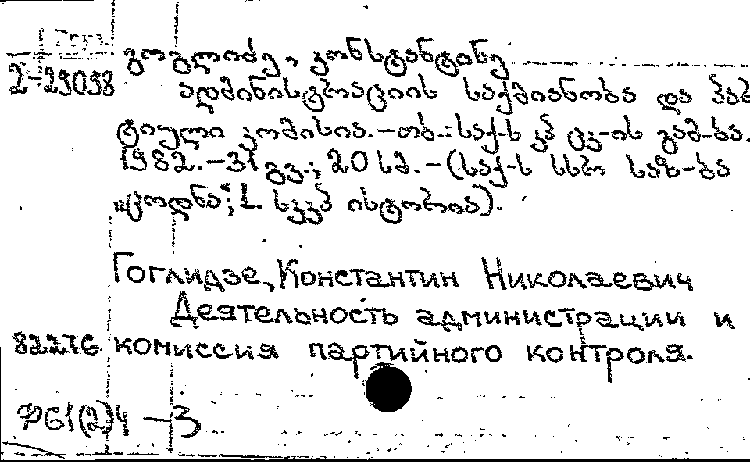 გოგლიძე, კონსტანტინე
2-29098
ადმინისტრაციის საქმიანობა და პარ
ტიული კომისია. – თბ.: საქ-ს კპ ცკ-ის გამ-ბა.
1982. – 31 გვ.; 20 სმ. – (საქ-ს სსრ საზ-ბა
„ცოდნა“; 1. სკკპ ისტორია).
Гоглидзе, Константин Николаевич
Деятельность администрации и
82276 комиссия партийного контроля.
Ф61(2)4 – 3